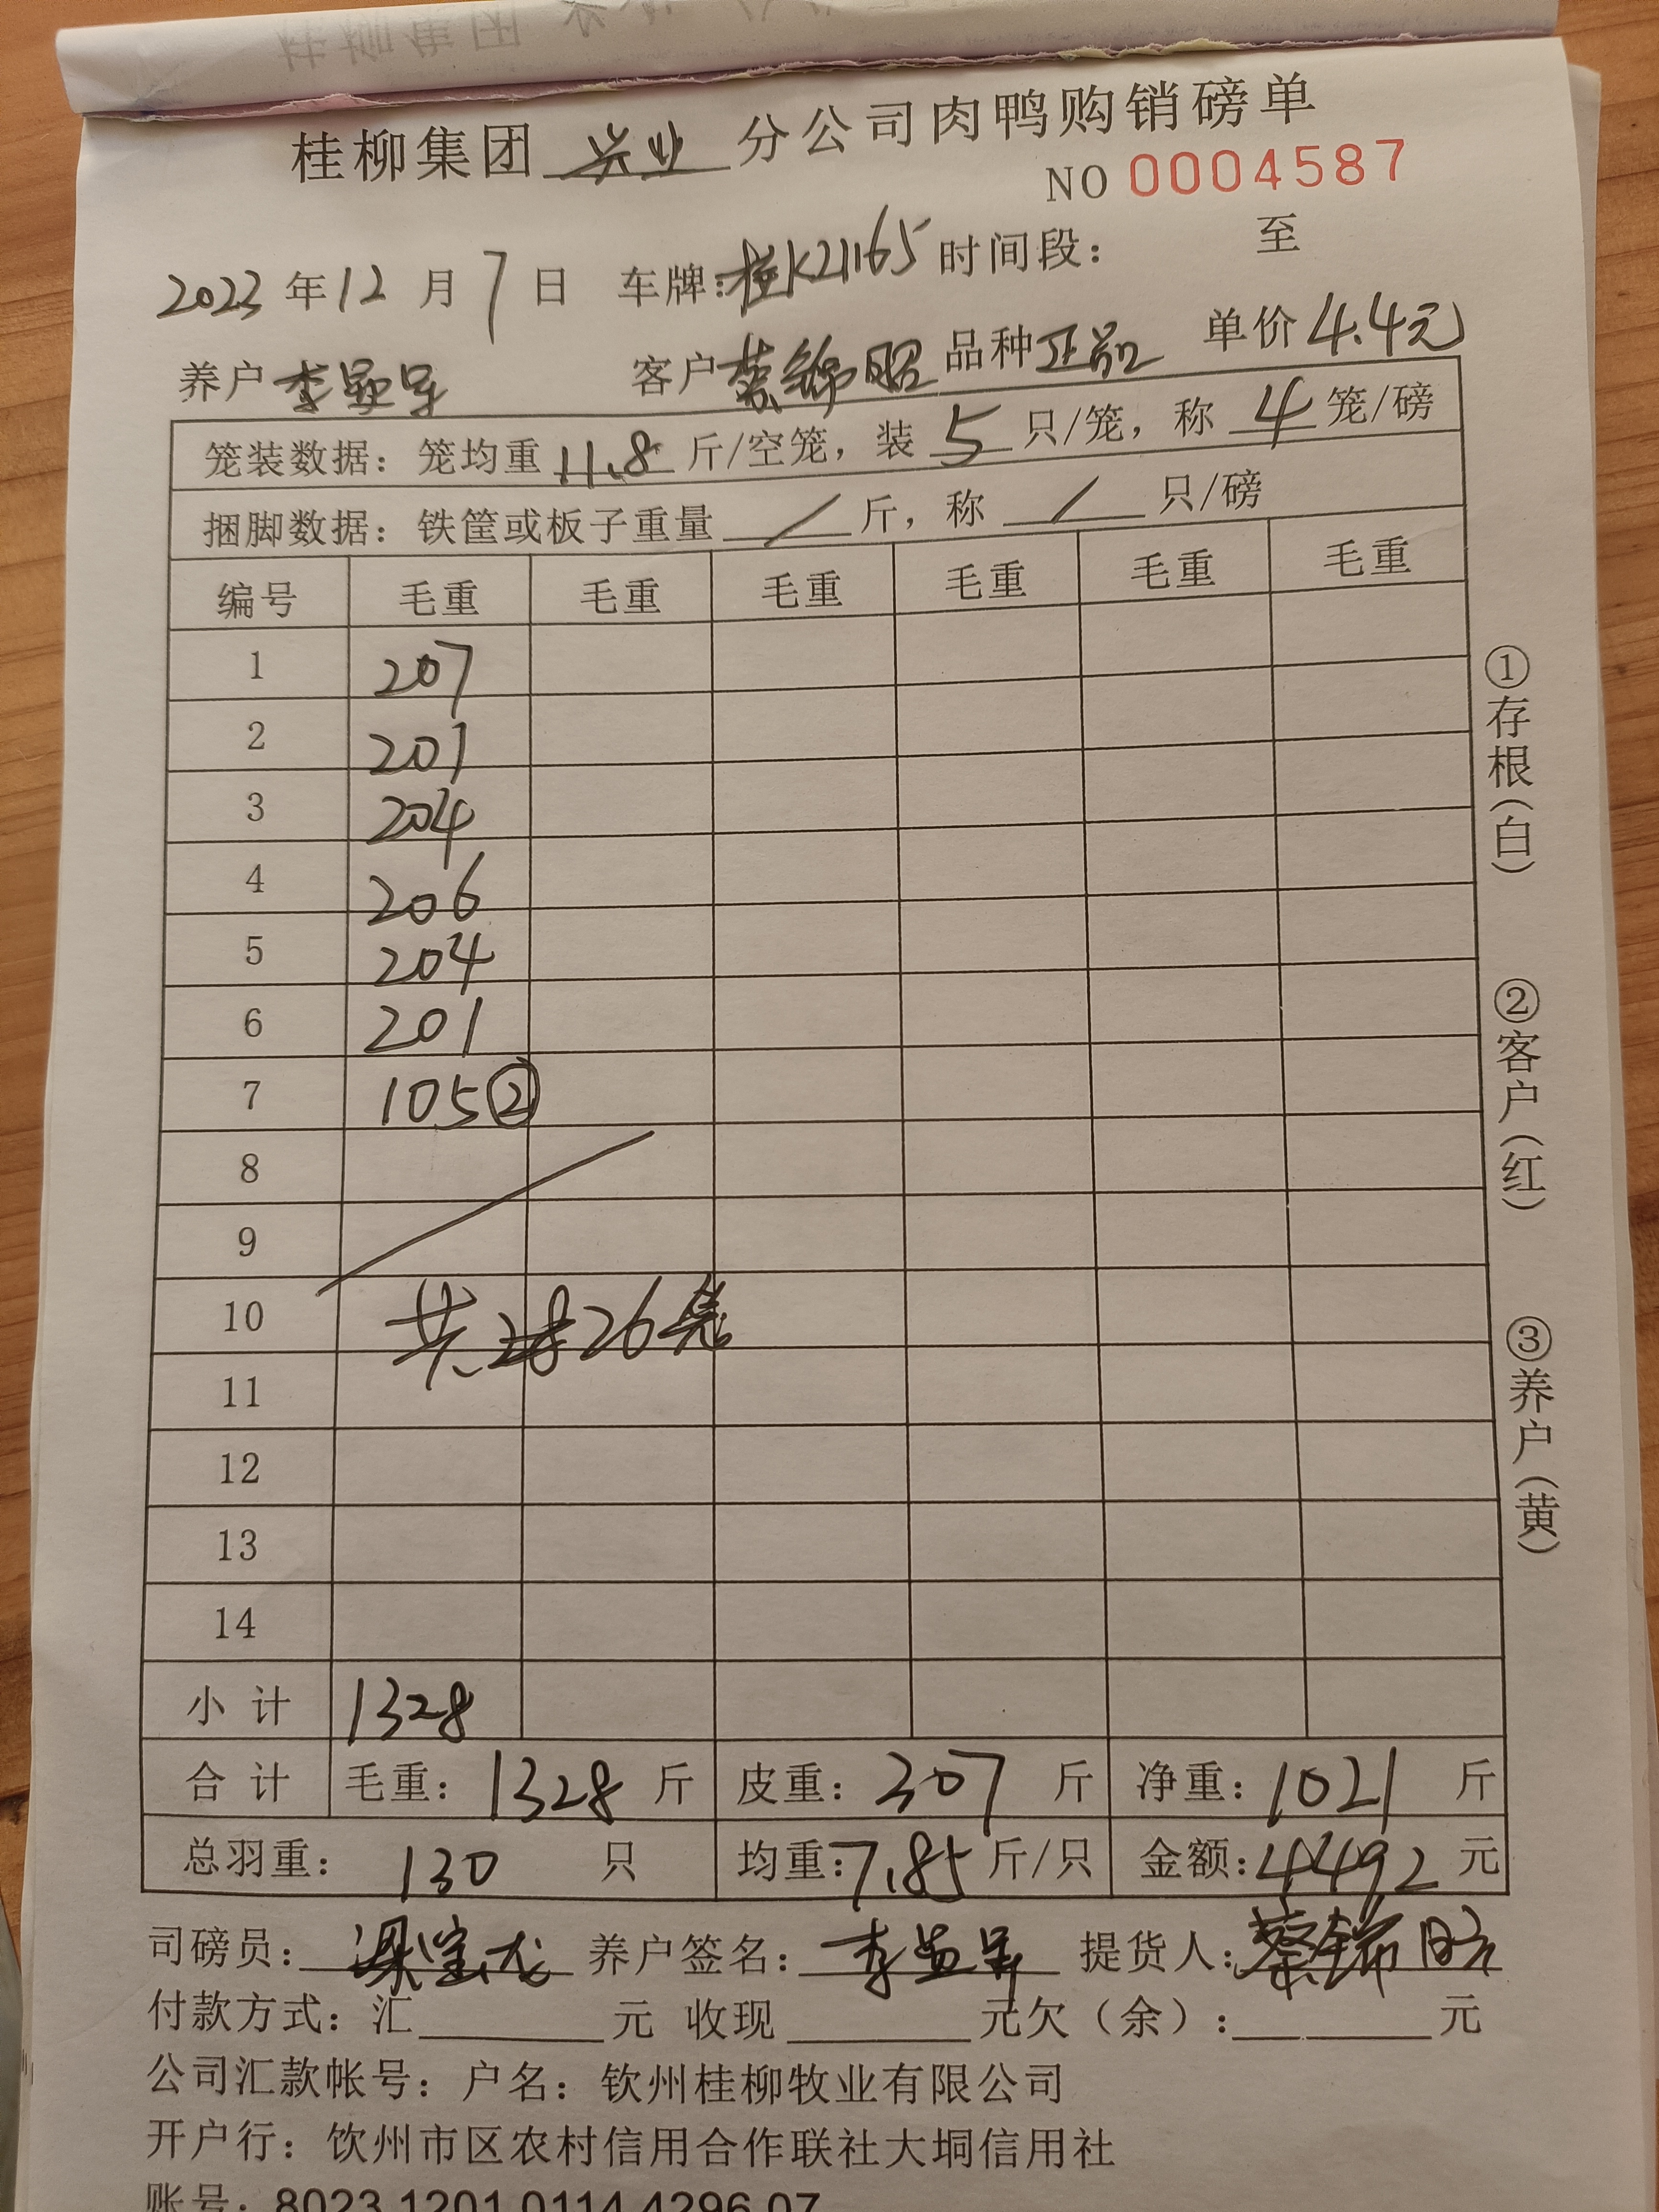 桂柳集团 兴业 分公司肉鸭购销磅单
NO 0004587
2023 年 12 月 7 日 车牌:桂K21165 时间段: 至
养户 李 客户 蔡锦昭 品种 正品 单价 4.4元
笼装数据: 笼均重 11.8 斤/空笼, 装 5 只/笼, 称 4 笼/磅
捆脚数据: 铁筐或板子重量 / 斤, 称 / 只/磅
编号 毛重 毛重 毛重 毛重 毛重 毛重
1 207
2 201
3 204
4 206
5 204
6 201
7 105②
8
9
10 共 26笼
11
12
13
14
小计 1328
合计 毛重: 1328 斤 皮重: 307 斤 净重: 1021 斤
总羽重: 130 只 均重: 7.85 斤/只 金额: 4492 元
司磅员: 梁宝龙 养户签名: 李 提货人: 蔡锦昭
付款方式: 汇 元 收现 元欠(余): 元
公司汇款帐号: 户名: 钦州桂柳牧业有限公司
开户行: 饮州市区农村信用合作联社大垌信用社
账号: 8023 1201 0114 4296 07
①存根(白)
②客户(红)
③养户(黄)